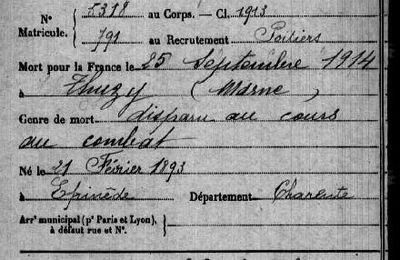 N° 5318 au Corps. — Cl. 1913
Matricule. 791 au Recrutement Poitiers
Mort pour la France le 25 Septembre 1914
à Thuzy (Marne)
Genre de mort disparu au cours
au combat
Né le 21 Février 1893
à Epinède Département Charente
Arr^t municipal (p^r Paris et Lyon),
à défaut rue et N°.